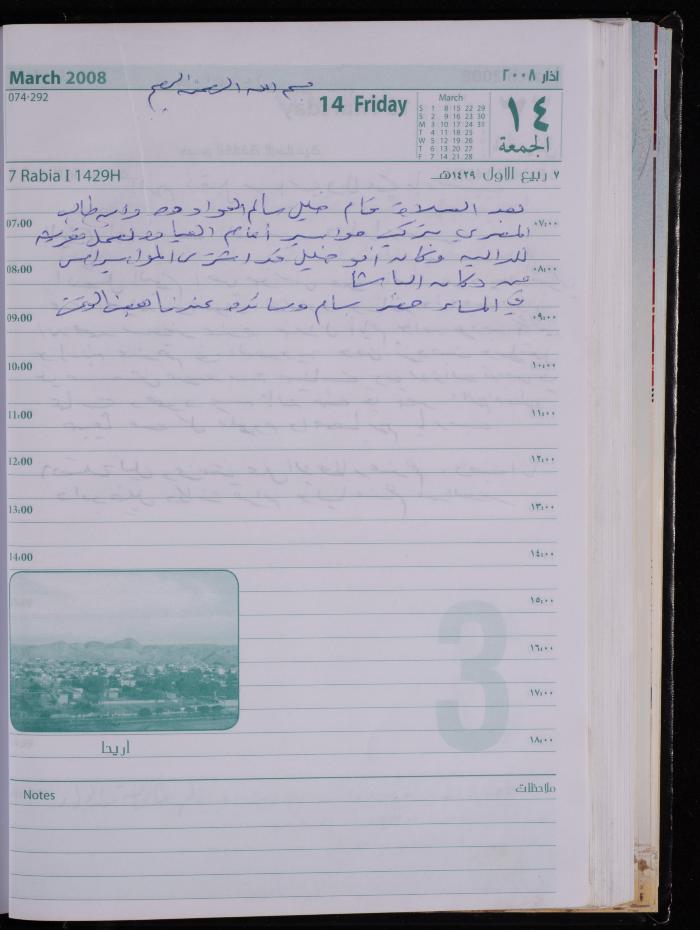 March 2008
اذار ٢٠٠٨
بسم الله الرحمن الرحيم
074-292
14 Friday
March
S 1 8 15 22 29
S 2 9 16 23 30
M 3 10 17 24 31
T 4 11 18 25
W 5 12 19 26
T 6 13 20 27
F 7 14 21 28
١٤
الجمعة
7 Rabia I 1429H
٧ ربيع الاول ١٤٢٩هـ
بعد الصلاة قام خليل سالم العواودة وابو طالب
07:00 ٠٧:٠٠
المصري بتركيب مواسير أمام العيادة لعمل معرش
للدالية وكان ابو خليل قد اشترى المواسير امس
08:00 ٠٨:٠٠
من دكان الباشا
في المساء حضر سام وسائد عندنا
09:00 ٠٩:٠٠
10:00 ١٠:٠٠
11:00 ١١:٠٠
12:00 ١٢:٠٠
13:00 ١٣:٠٠
14:00 ١٤:٠٠
١٥:٠٠
3
١٦:٠٠
١٧:٠٠
١٨:٠٠
اريحا
Notes
ملاحظات